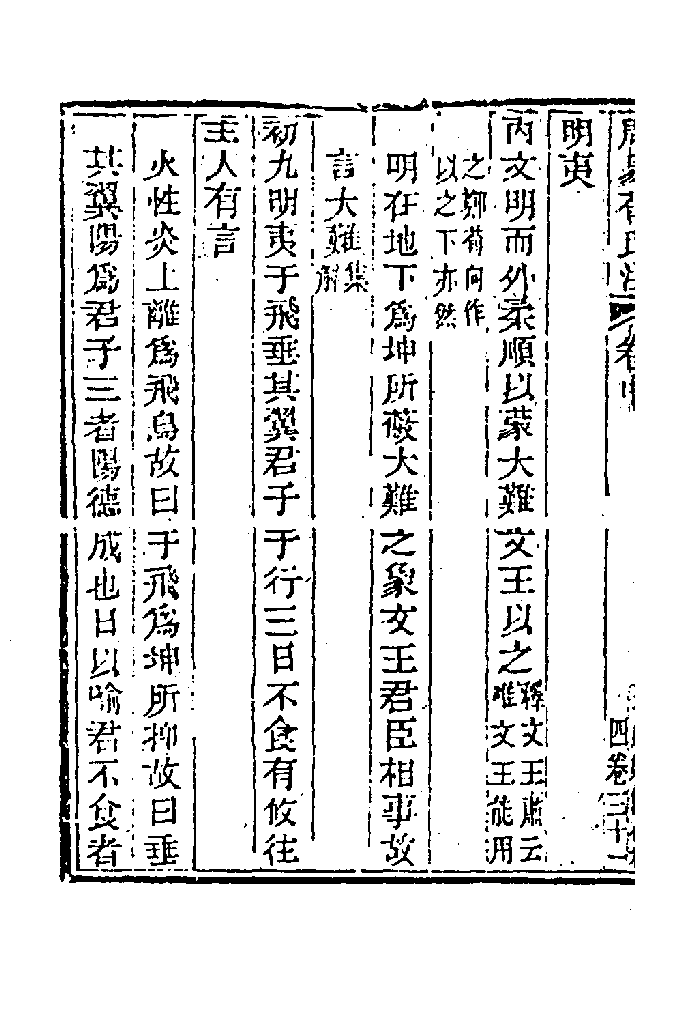 明夷
內文明而外柔順以蒙大難文王以之釋文王肅云唯文王能用
之鄭荀向作以之下亦然
明在地下為坤所蔽大難之象文王君臣相事故
言大難集解
初九明夷于飛垂其翼君子于行三日不食有攸往
主人有言
火性炎上離為飛鳥故曰于飛為坤所抑故曰垂
其翼陽為君子三者陽德成也日以喻君不食者